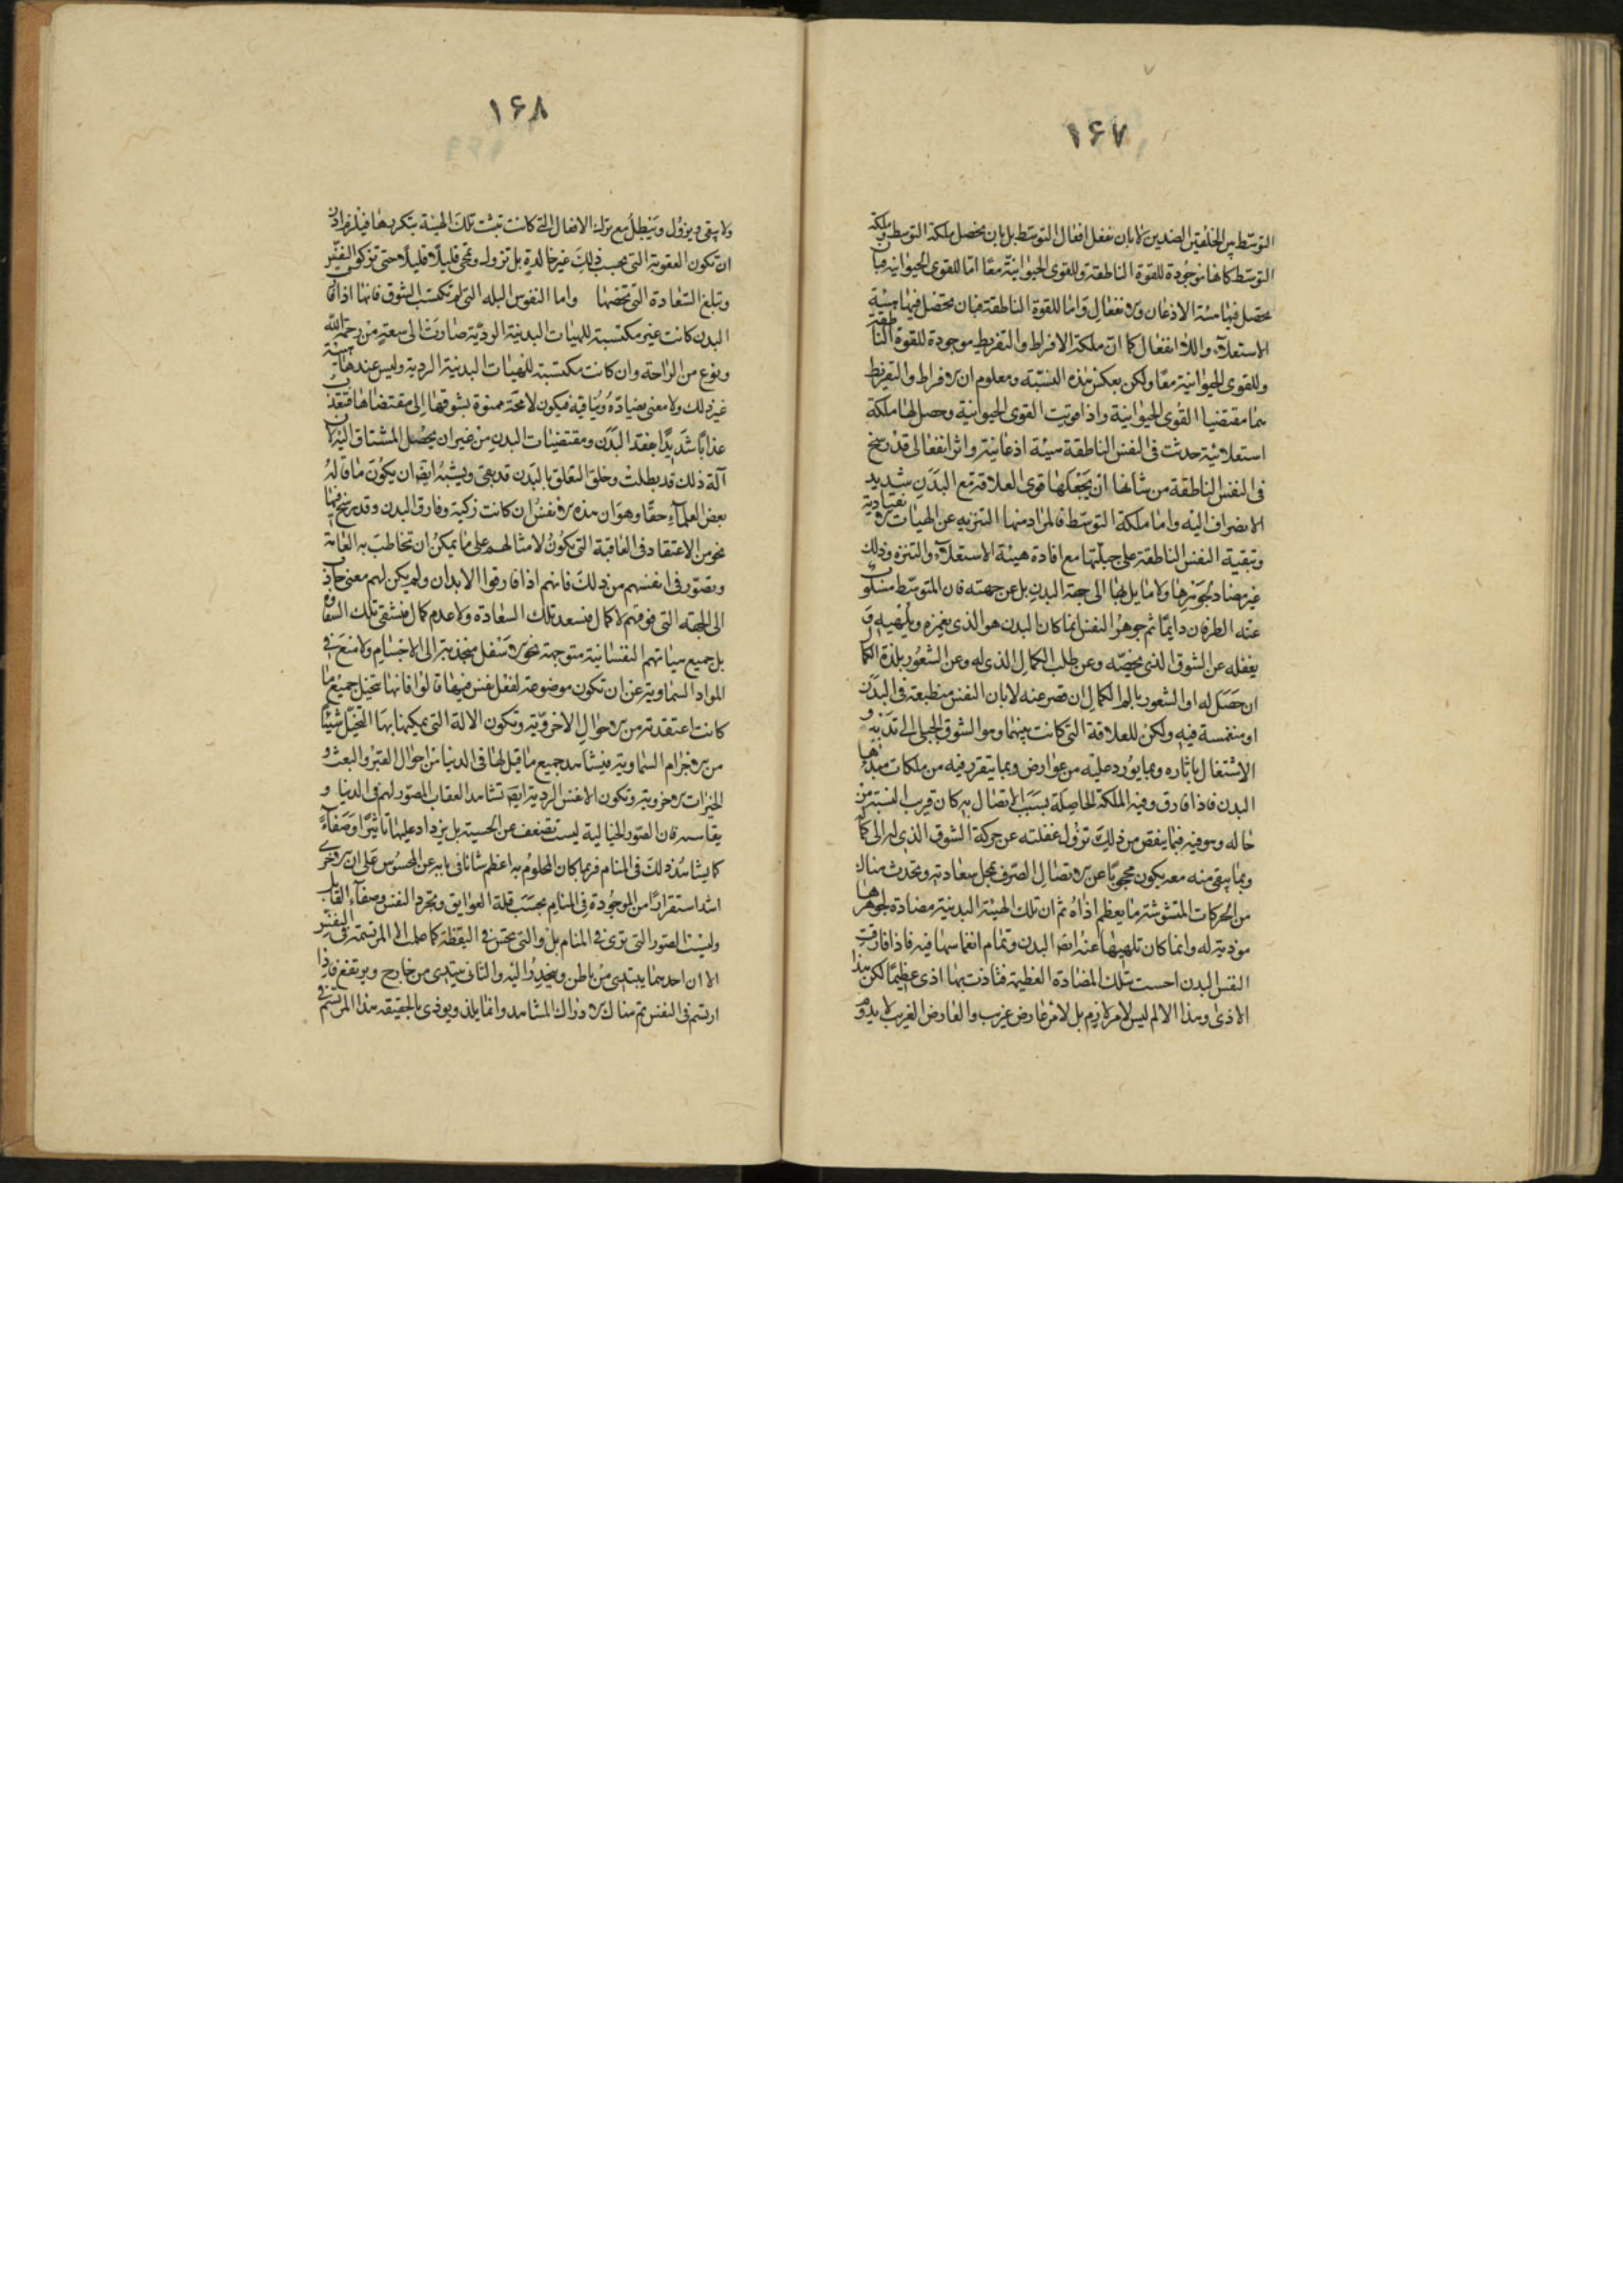 ١۶٧
التوسّط بين الخلقين الضدين لا بان تفعل افعال التوسّط بل بان تحصل ملكة التوسط وملكة
التوسّط كانها موجودة للقوة الناطقة وللقوى الحيوانية معًا امّا للقوى الحيوانية فبان
تحصل فيها هيئة الاذعان والانفعال وَامّا للقوة الناطقة فبان تحصل فيها هيئة
الاستعلاء واللا انفعال كما انّ ملكة الافراط والتفريط موجودة للقوة الناطقة
وللقوى الحيوانية معًا ولكن بعكس هذه النسبة ومعلوم ان الافراط والتفريط
هما مقتضيا القوى الحيوانية واذا قويت القوى الحيوانية وحصل لها ملكة
استعلائية حدثت في النفس الناطقة هيئة اذعانية واثر انفعالي قد رسخ
في النفس الناطقة من شانها ان يجعلها قوى العلاقة مع البدن شديد
الانصراف اليه واما ملكة التوسّط فالمراد منها التنزيه عن الهيات الانقيادية
وتبقية النفس الناطقة على جبلّتها مع افادة هيئة الاستعلاء والتنزه وذلك
غير مضاد لجوهرها ولا مايل بها الى جهة البدن بل عن جهته فان المتوسّط مسلوب
عنه الطرفان دايمًا ثم جوهر النفس انما كان البدن هو الذي يغمره ويلهيه و
يغفله عن الشوق الذي يخصّه وعن طلب الكمال الذي له وعن الشعور بلذة الكمال
ان حصل له او الشعور بالم الكمال ان قصر عنه لا بان النفس منطبعة في البدن
او منغمسة فيه ولكن للعلاقة التي كانت بينهما وهو الشوق الجبلي الى تدبيره و
الاشتغال باثاره وبما يورد عليه من عوارض وبما يتقرر فيه من ملكات مبدؤها
البدن فاذا فارق وفيه الملكة الحاصلة بسبب الاتصال به كان قريب الشبه من
حاله وهو فيه فبما ينقص من ذلك تزول غفلته عن حركة الشوق الذي له الى كماله
وبما يبقى منه معه يكون محجوبًا عن الاتصال الصرف بمحل سعادته وتحدث هناك
من الحركات المتشوشة ما يعظم اذاه ثم ان تلك الهيئة البدنية مضادة لجوهرها
موذية له وانما كان تلهيها عنه ايضًا البدن وتمام انغماسها فيه فاذا فارقت
النفس البدن احست بتلك المضادة العظيمة فتاذت بها اذى عظيمًا لكن هذا
الاذى وهذا الالم ليس لامر لازم بل لامر عارض غريب والعارض الغريب لا يدوم
١۶٨
ولا يبقى ويزول ويبطل مع ترك الافعال التي كانت تثبت تلك الهيئة بتكررها فيلزم اذن
ان تكون العقوبة التي بحسب ذلك غير خالدة بل تزول وتمحى قليلًا قليلًا حتى تزكو النفس
وتبلغ السّعادة التي تخصها واما النفوس البله التي لم تكتسب الشوق فانها اذا فارقت
البدن كانت غير مكتسبة للهيات البدنية الرديّة صارت الى سعة من رحمة الله
ونوع من الراحة وان كانت مكتسبة للهيات البدنية الردية وليس عندها هيئة
غير ذلك ولا معنى يضادّه وينافيه فيكون لا محة ممنوة بشوقها الى مقتضاها فتعذب
عذابًا شديدًا بفقد البدن ومقتضيات البدن من غير ان يحصل المشتاق اليه لان
آلة ذلك قد بطلت وخلق التعلق بالبدن قد بقى ويشبه ايضا ان يكون ما قاله
بعض العلماء حقًا وهو ان هذه الانفس ان كانت زكية وفارق البدن وقد رسخ فيها
نحو من الاعتقاد في العاقبة التي تكون لامثالهم على ما يمكن ان تخاطب به العامة
وتصوّر في انفسهم من ذلك فانهم اذا فارقوا الابدان ولم يكن لهم معنى جاذب
الى الجهة التي فوقهم لا كمال فتسعد تلك السعادة ولا عدم كمال فتشقى تلك الشقاوة
بل جميع هياتهم النفسانية متوجهة نحو الاسفل منجذبة الى الاجسام ولا منع في
المواد السماوية عن ان تكون موضوعة لفعل نفس فيها قالوا فانها تتخيل جميع ما
كانت اعتقدته من الاحوال الاخروّية وتكون الالة التي يمكنها بها التخيّل شيئًا
من الاجرام السّماوية فتشاهد جميع ما قيل لها في الدنيا من احوال القبر والبعث و
الخيرات الاخروية وتكون الانفس الردية ايضا تشاهد العقاب المصوّر لهم في الدنيا و
يقاسيه فان الصور الخيالية ليست تضعف عن الحسية بل يزداد عليها تاثيرًا وصفاءً
كما يشاهد ذلك في المنام فربما كان المحلوم به اعظم شانا في بابه عن المحسوس على ان الاخرى
اشد استقرارًا من الموجودة في المنام بحسب قلة العوايق وتجرد النفس وصفاء القابل
وليست الصور التي ترى في المنام بل والتي تحس في اليقظة كما علمت الا المرتسمة في النفس
الا ان احدهما يبتدى من باطن وينحدر اليه والثاني يبتدى من خارج ويرتفع فاذا
ارتسم في النفس تم هناك الادراك المشاهد وانما يلذ ويوذى بالحقيقة هذا المرتسم في